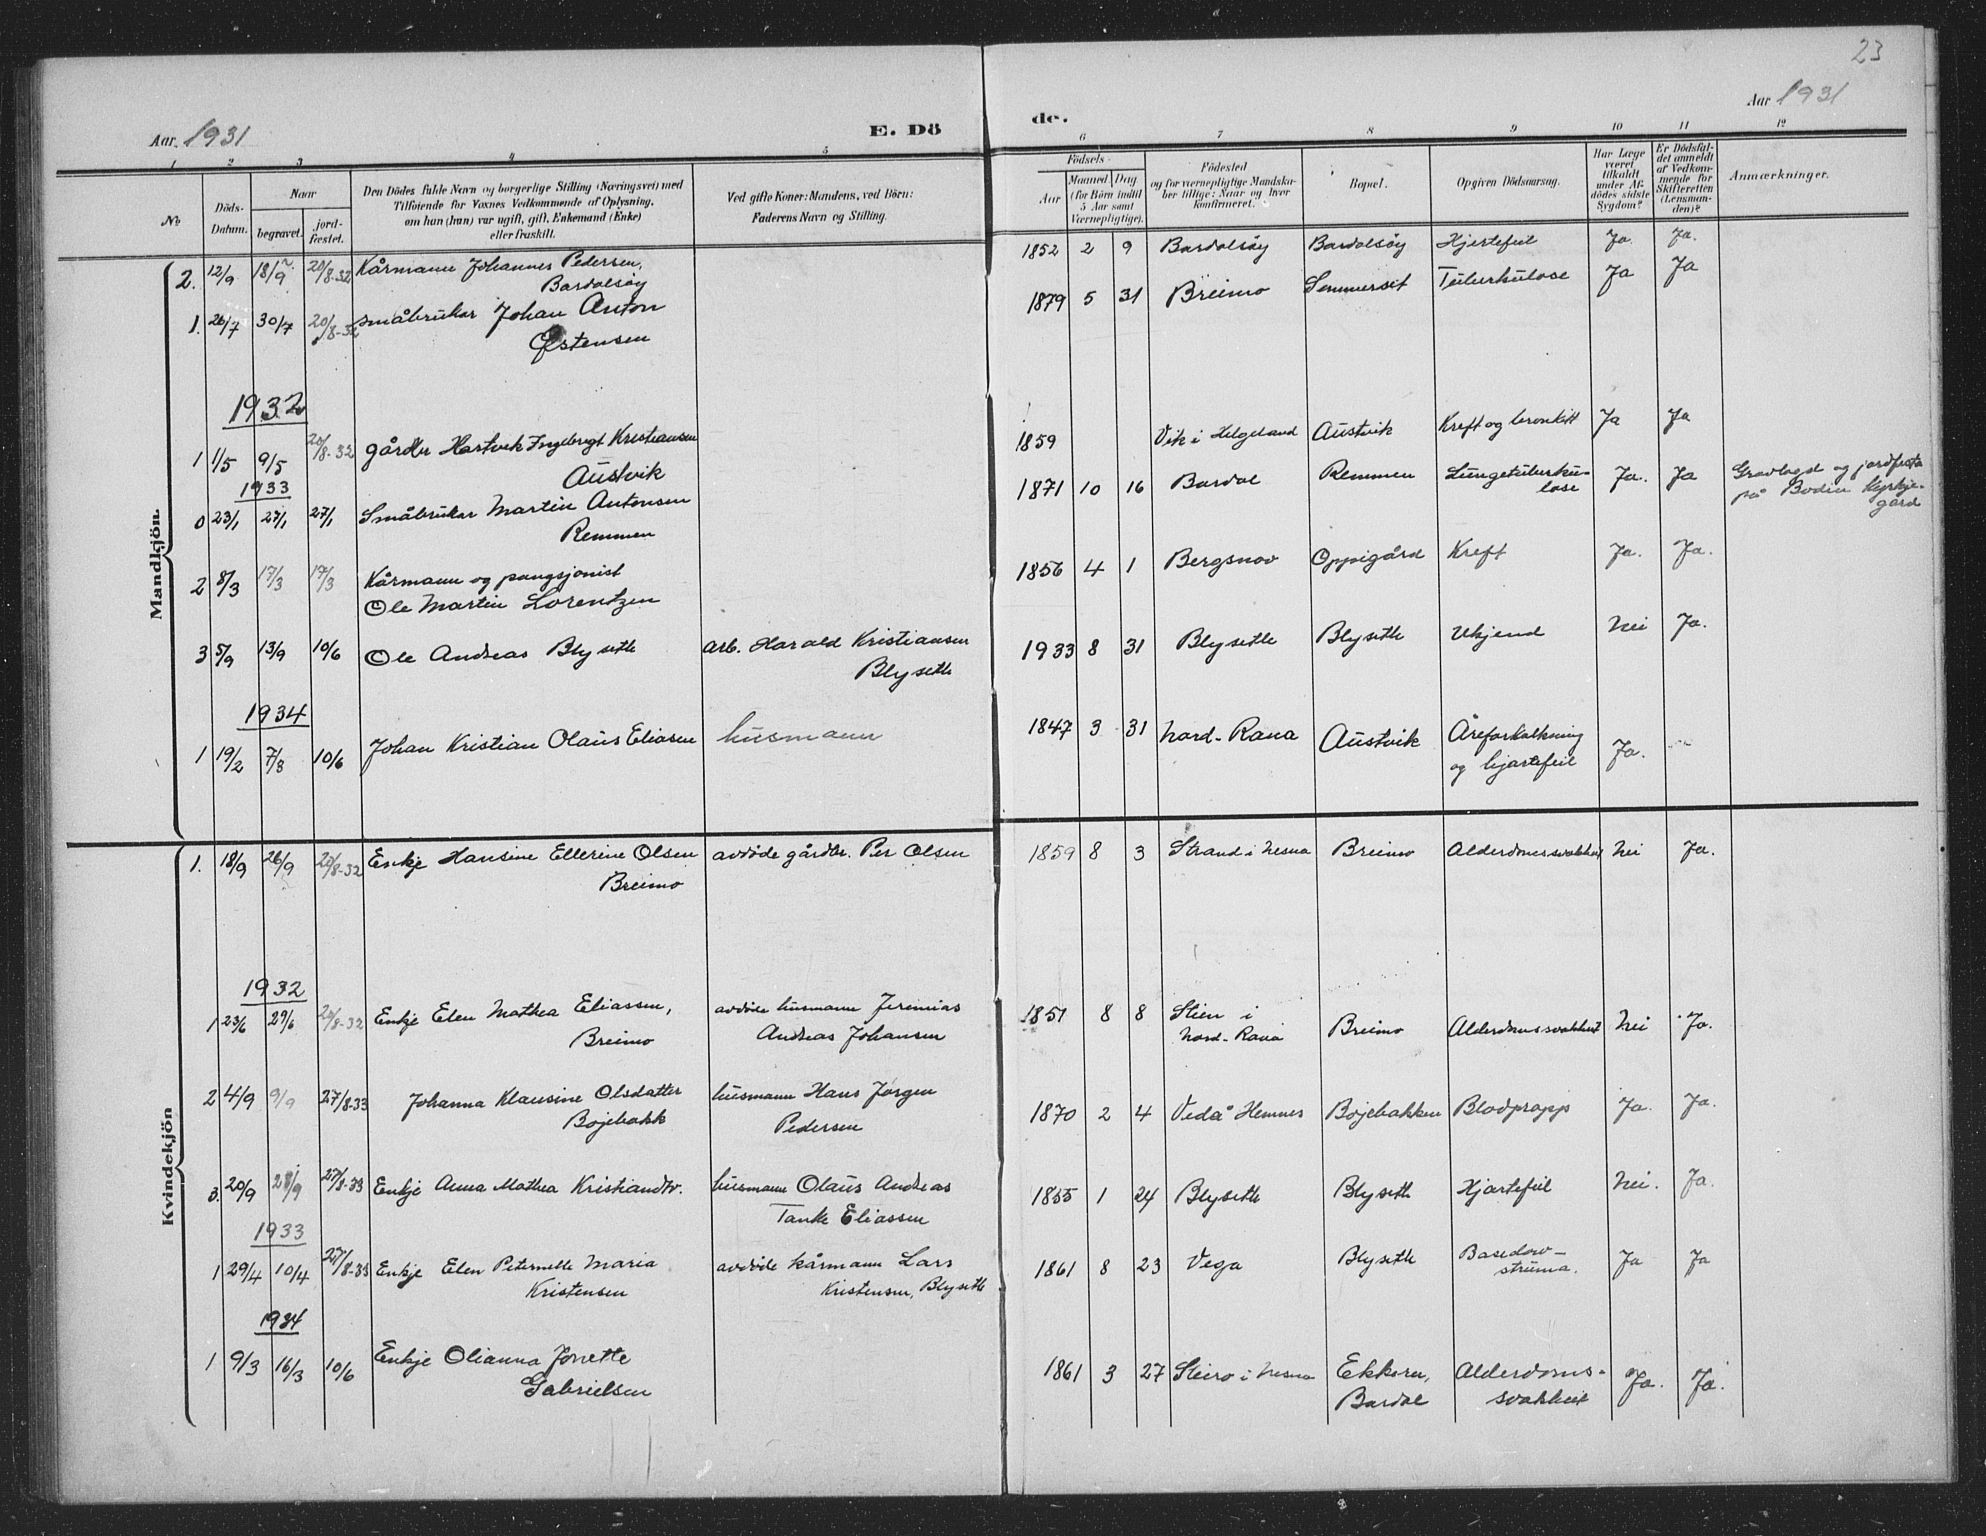 23
Aar 1931 E. Dö
de. Aar 1931
1 2 3 4 5
6 7 8 9 10 11 12
No
Döds-Datum.
Naar
begravet.
jord-fæstet.
Den Dödes fulde Navn og borgerlige Stilling (Næringsvei) med
Tilföiende for Voxnes Vedkommende af Oplysning,
om han (hun) var ugift, gift, Enkemand (Enke)
eller fraskilt.
Ved gifte Koner: Mandens, ved Börn:
Faderens Navn og Stilling.
Födsels-
Aar
Maaned Dag
(for Börn indtil
5 Aar samt
Værnepligtige).
Födested
og for værnepligtige Mandska-
ber tillige: Naar og hvor
konfirmeret.
Bopæl.
Opgiven Dödsaarsag.
Har Læge
været
tilkaldt
under Af-
dödes sidste
Sygdom?
Er Dödsfal-
det anmeldt
af Vedkom-
mende for
Skifteretten
(Lensman-
den)?
Anmærkninger.
Mandkjön.
2. 12/9 18/9 20/8-32 Kårmann Johannes Pedersen, 1852 2 9 Bardalsöy Bardalsöy Hjertefeil Ja. Ja.
Bardalsöy
1. 26/7 30/7 20/8-32 småbruker Johan Anton 1879 5 31 Breimo Semmerset Tuberkulose Ja Ja
Østensen
1932
1 1/5 9/5 20/8-32 gårdbr Hartvik Ingebrigt Kristiansen 1859 Vik i Helgeland Austvik Kreft og bronkitt Ja Ja
Austvik
1933
0 23/1 27/1 27/1 Småbruker Martin Antonsen 1871 10 16 Bardal Remmen Lungetuberku- Ja. Ja Gravlagd og jordfesta
Remmen lose på Bodin Kyrkje-
gård
2 8/3 17/3 17/3 Kårmann og pangsjonist 1856 4 1 Bergsnov Oppigård Kreft Ja. Ja.
Ole Martin Lorentzen
3 5/9 13/9 10/6 Ole Andreas Blyseth arb. Harald Kristiansen 1933 8 31 Blyseth Blyseth Ukjend Nei Ja.
Blyseth
1934
1 19/2 7/3 10/6 Johan Kristian Olaus Eliasen husmann 1847 3 31 Nord-Rana Austvik Åreforkalkning Ja.
og hjartefeil
Kvindekjön
1. 18/9 26/9 20/8-32 Enkje Hansine Ellerine Olsen avdöde gårdbr. Per Olsen 1859 8 3 Strand i Nesna Breimo Alderdomssvakhet Nei Ja.
Breimo
1932
1 23/6 29/6 20/8-32 Enkje Elen Mathea Eliassen, avdöde husmann Jeremias 1851 8 8 Stien i Breimo Alderdomssvakhet Nei Ja.
Breimo Andreas Johansen Nord-Rana
2 4/9 9/9 27/8-33 Johanna Klausine Olsdatter husmann Hans Jörgen 1870 2 4 Vedå Hemnes Böjebakken Blodpropp Ja. Ja.
Böjebakk Pedersen
3. 20/9 28/9 27/8-33 Enkje Anna Mathea Kristiandtr. husmann Olaus Andreas 1855 1 24 Blyseth Blyseth Hjartefeil Nei. Ja.
Tanke Eliassen
1933
1 29/4 10/4 27/8-33 Enkje Elen Peternelle Maria avdöde kårmann Lars 1861 8 23 Vega Blyseth Basedow- Ja Ja
Kristensen Kristensen, Blyseth struma.
1934
1 9/3 16/3 10/6 Enkje Olianna Jonette 1861 3 27 Steiro i Nesna Ekkoren, Alderdoms- Ja. Ja.
Gabrielsen Bardal svakheit